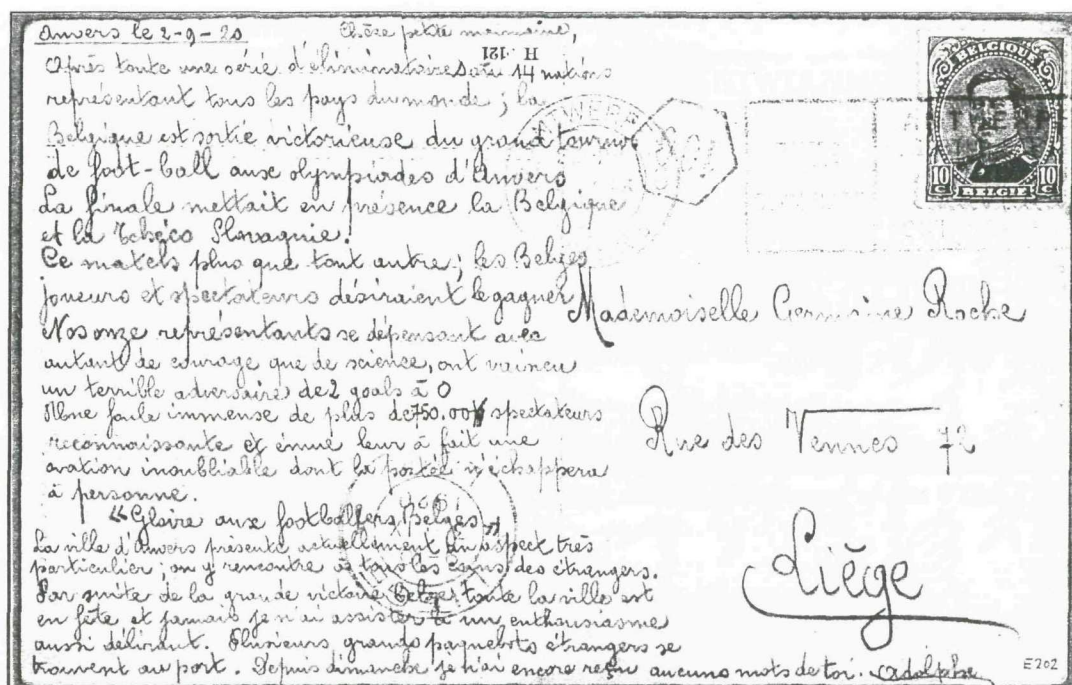 Anvers le 2-9-20 Chère petite mamaine,
H .121
Après toute une série d'éliminatoires 14 nations
représentant tous les pays du monde ; la
Belgique est sortie victorieuse du grand tournoi
de foot-ball aux olympiades d'Anvers
La finale mettait en présence la Belgique
et la Tchéco Slovaquie.
Ce match plus que tout autre ; les Belges
joueurs et spectateurs désiraient le gagner
Nos onze représentants se dépensant avec
autant de courage que de science, ont vaincu
un terrible adversaire de 2 goals à 0
Une foule immense de plus de spectateurs
reconnaissante et émue leur à fait une
ovation inoubliable dont la portée n'échappera
à personne.
"Gloire aux footballers Belges"
La ville d'Anvers présente actuellement un aspect très
particulier ; on y rencontre à tous les coins des étrangers.
Par suite de la grande victoire Belge, toute la ville est
en fête et jamais je n'ai assister à un enthousiasme
aussi délirant. Plusieurs grands paquebots étrangers se
trouvent au port. Depuis dimanche je n'ai encore reçu aucuns mots de toi. Adolphe
BELGIQUE
10 C 10 C
BELGIË
Mademoiselle Germaine Roche
Rue des Vennes 72
Liège
E202